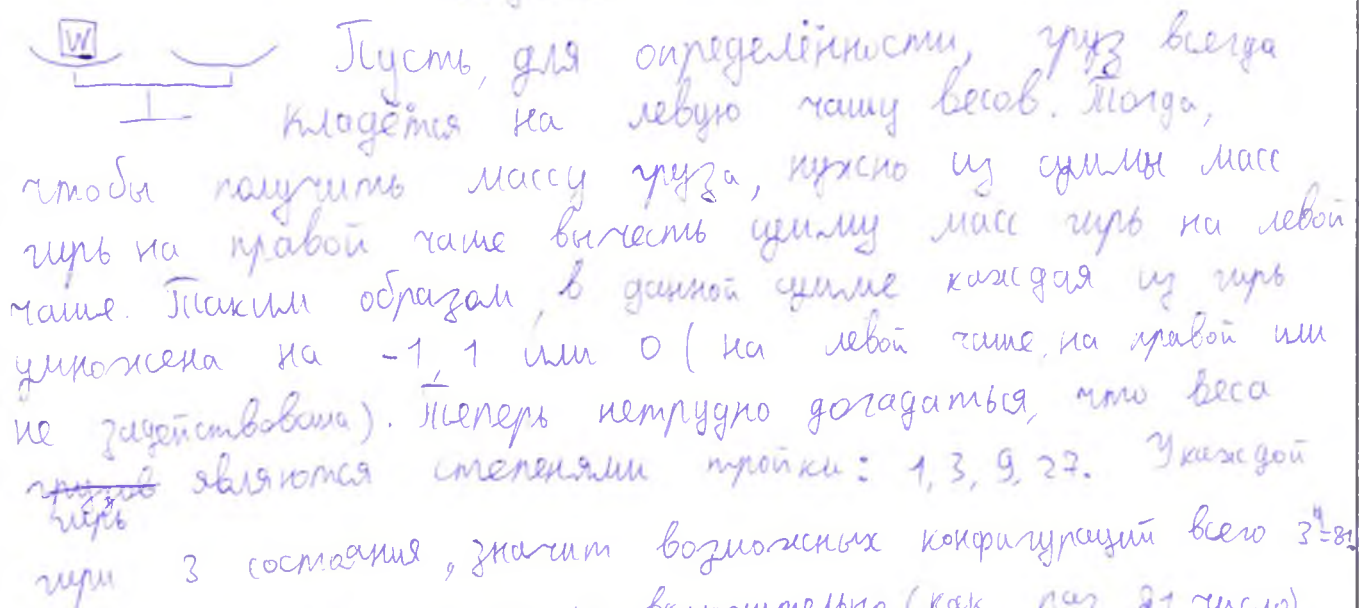 W
Пусть, для определённости, груз всегда
кладётся на левую чашу весов. Тогда,
чтобы получить массу груза, нужно из суммы масс
гирь на правой чаше вычесть сумму масс гирь на левой
чаше. Таким образом, в данной сумме каждая из гирь
умножена на -1, 1 или 0 (на левой чаше, на правой или
не задействована). Теперь нетрудно догадаться, что веса
являются степенями тройки: 1, 3, 9, 27. У каждой
гирь
гири 3 состояния, значит возможных конфигураций всего 3⁴=81
включительно (как раз 81 число)